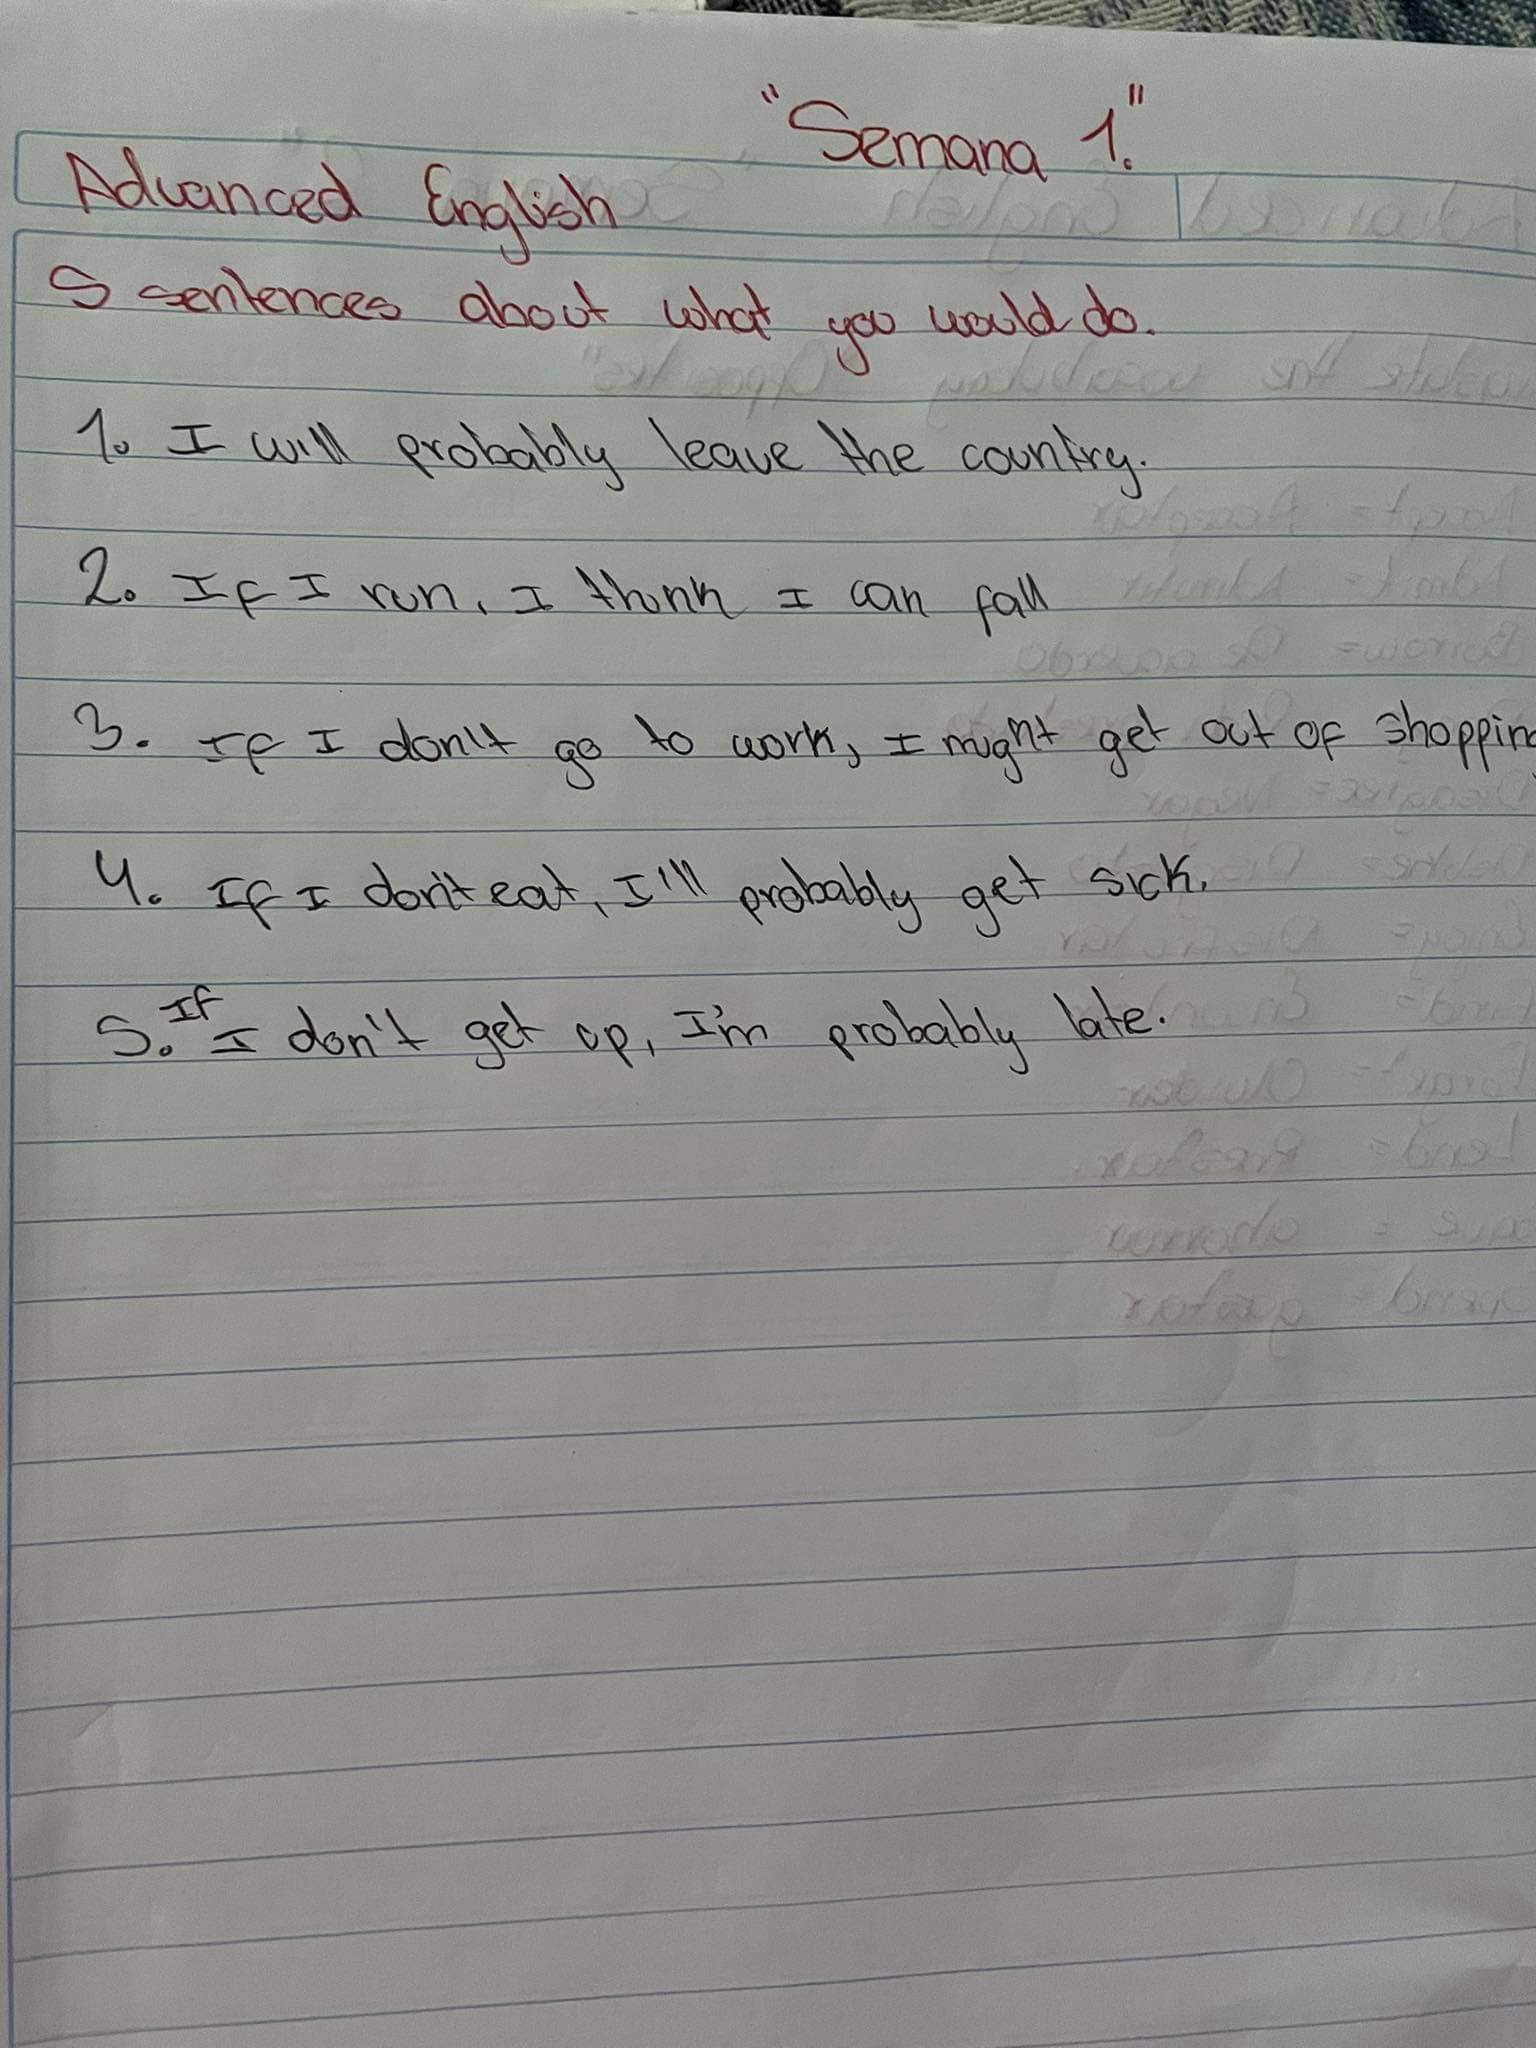 "Semana 1."
Advanced English
5 sentences about what you would do.
1. I will probably leave the country.
2. If I run, I think I can fall
3. If I don't go to work, I might get out of shopping
4. If I don't eat, I'll probably get sick.
5. If I don't get up, I'm probably late.